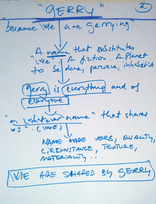 "GERRY"
because we are gerrying.
A name that postulates
"We" A fiction A planet
to be done, perceive, inhabited
Gerry is everything and of
everyone
"or whatever name" that shares
us - (verb)
NAME MADE VERB, QUALITY,
CIRCUMSTANCE, TEXTURE,
MATERIALITY...
WE ARE SHARED BY GERRY